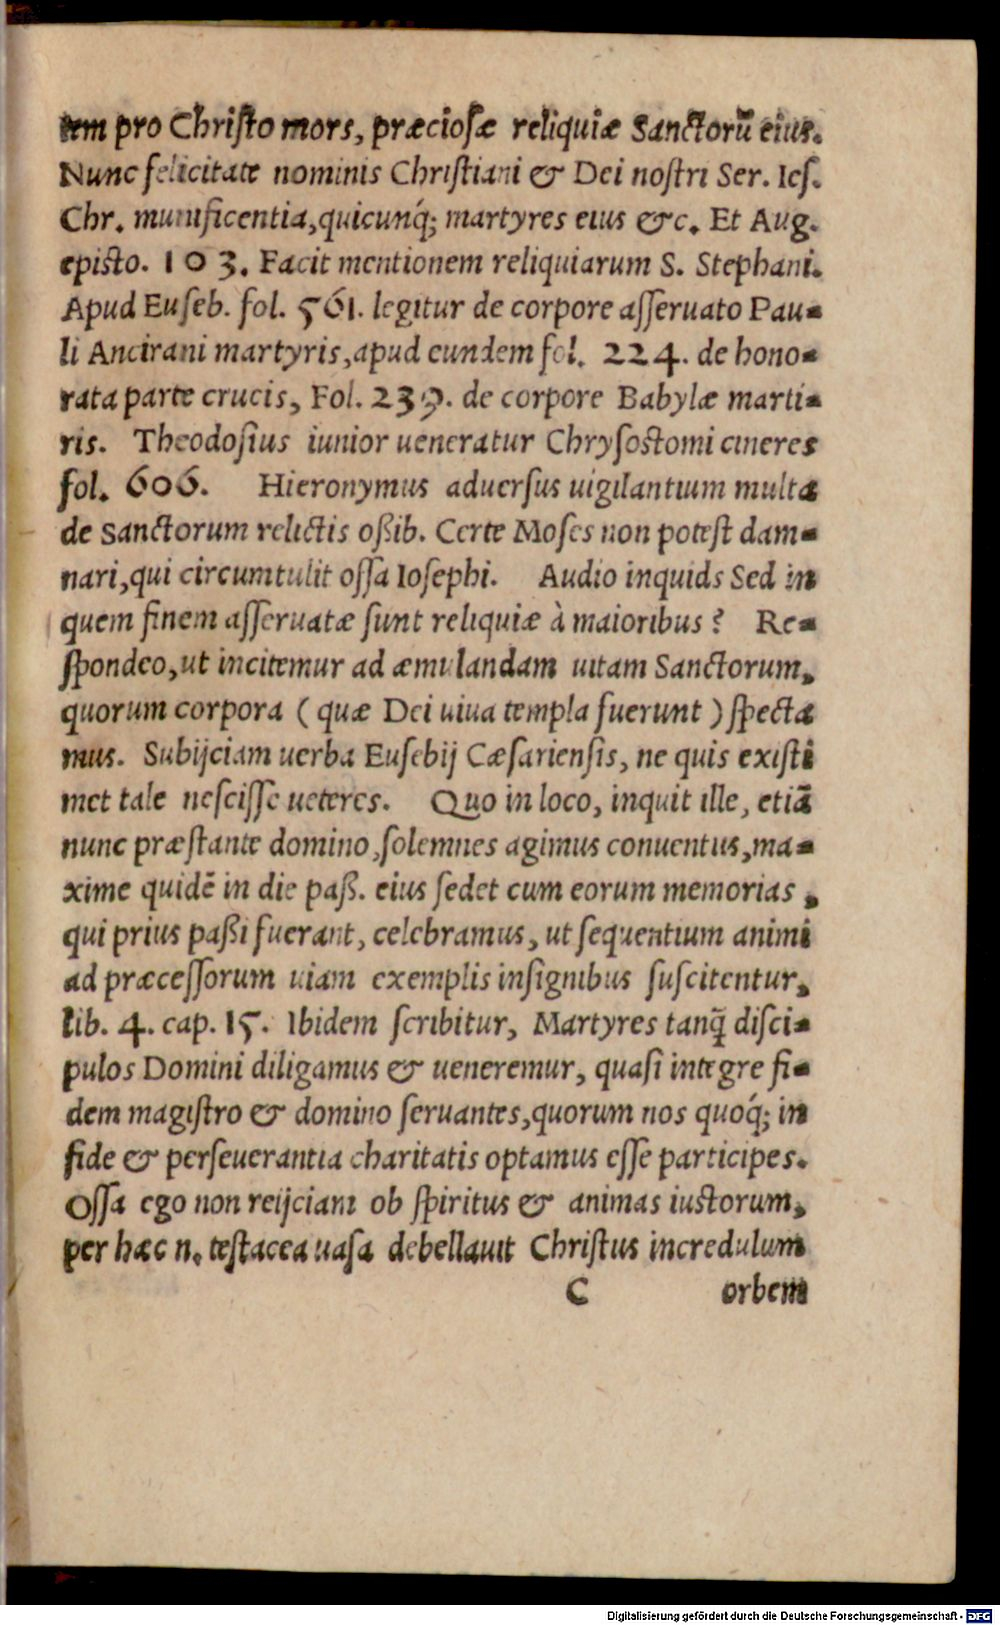 tem pro Christo mors, præciosæ reliquiæ Sanctorũ eius.
Nunc felicitate nominis Christiani & Dei nostri Ser. Ies.
Chr. munificentia, quicunq́; martyres eius &c. Et Aug.
episto. 103. Facit mentionem reliquiarum S. Stephani.
Apud Euseb. fol. 561. legitur de corpore asseruato Pau-
li Ancirani martyris, apud eundem fol. 224. de hono-
rata parte crucis, Fol. 239. de corpore Babylæ marti-
ris. Theodosius iunior ueneratur Chrysostomi cineres
fol. 606. Hieronymus aduersus uigilantium multa
de Sanctorum relictis oßib. Certe Moses non potest dam-
nari, qui circumtulit ossa Iosephi. Audio inquids Sed in
quem finem asseruatæ sunt reliquiæ à maioribus? Re-
spondeo, ut incitemur ad æmulandam uitam Sanctorum,
quorum corpora (quæ Dei uiua templa fuerunt) specta
mus. Subijciam uerba Eusebij Cæsariensis, ne quis existi
met tale nescisse ueteres. Quo in loco, inquit ille, etiã
nunc præstante domino, solemnes agimus conuentus, ma-
xime quidẽ in die paß. eius sedet cum eorum memorias,
qui prius paßi fuerant, celebramus, ut sequentium animi
ad præcessorum uiam exemplis insignibus suscitentur,
lib. 4. cap. 15. Ibidem scribitur, Martyres tanq̃ disci-
pulos Domini diligamus & ueneremur, quasi integre fi-
dem magistro & domino seruantes, quorum nos quoq́; in
fide & perseuerantia charitatis optamus esse participes.
Ossa ego non reijciam ob spiritus & animas iustorum,
per hæc n. testacea uasa debellauit Christus incredulum
C orbem
Digitalisierung gefördert durch die Deutsche Forschungsgemeinschaft - DFG